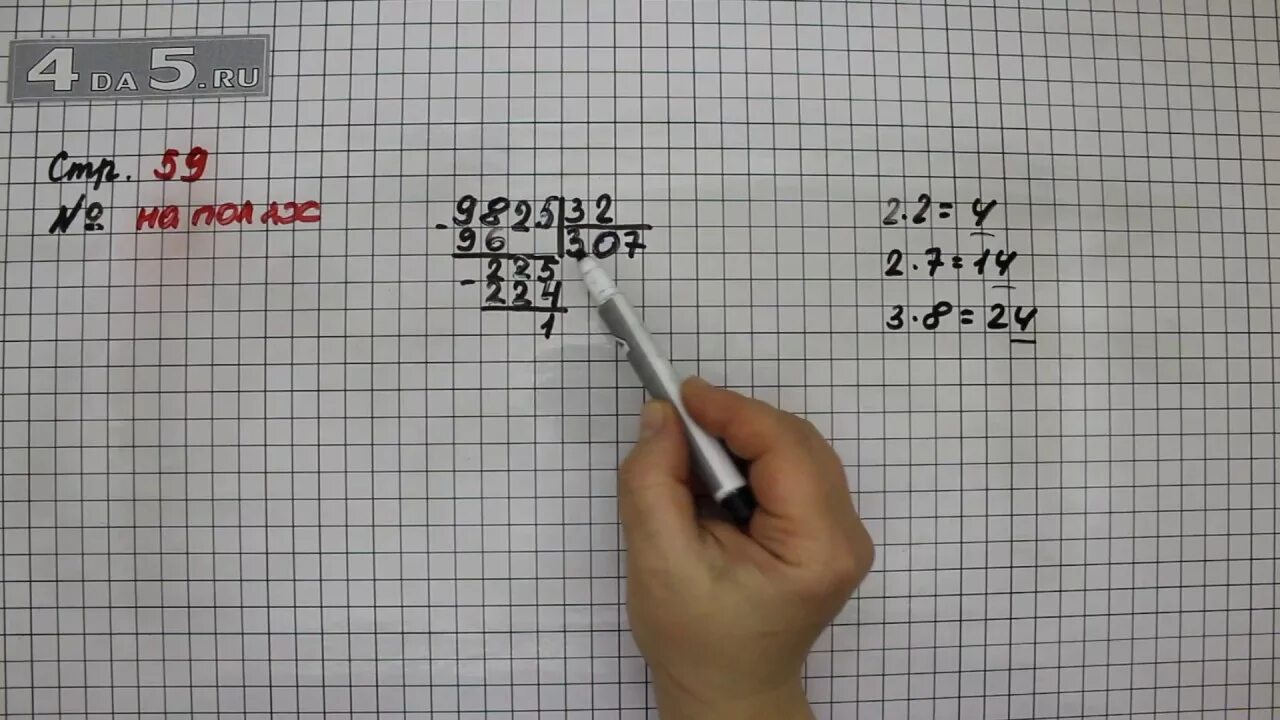 4 DA 5.RU
Стр. 59
№ на полях
9825 32
- 96 307
- 225
224
1
2·2=4
2·7=14
3·8=24